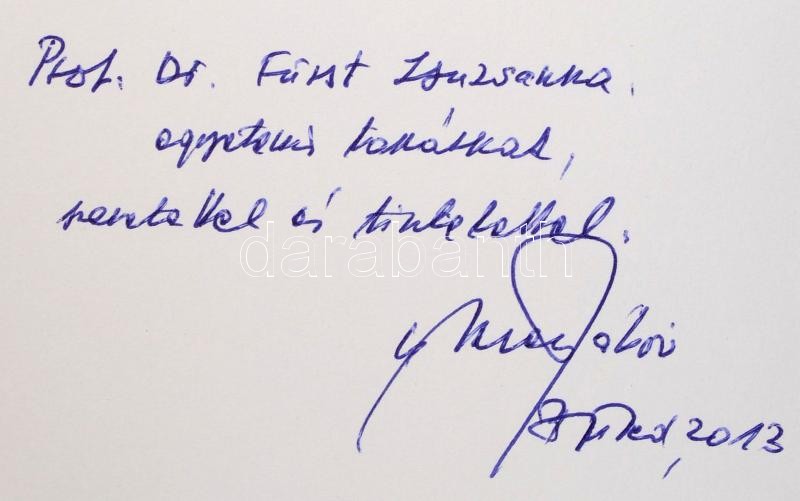 Prof. Dr. Fürst Zsuzsanna
egyetemi tanárnak,
szeretettel és tisztelettel.
darabanth
2013